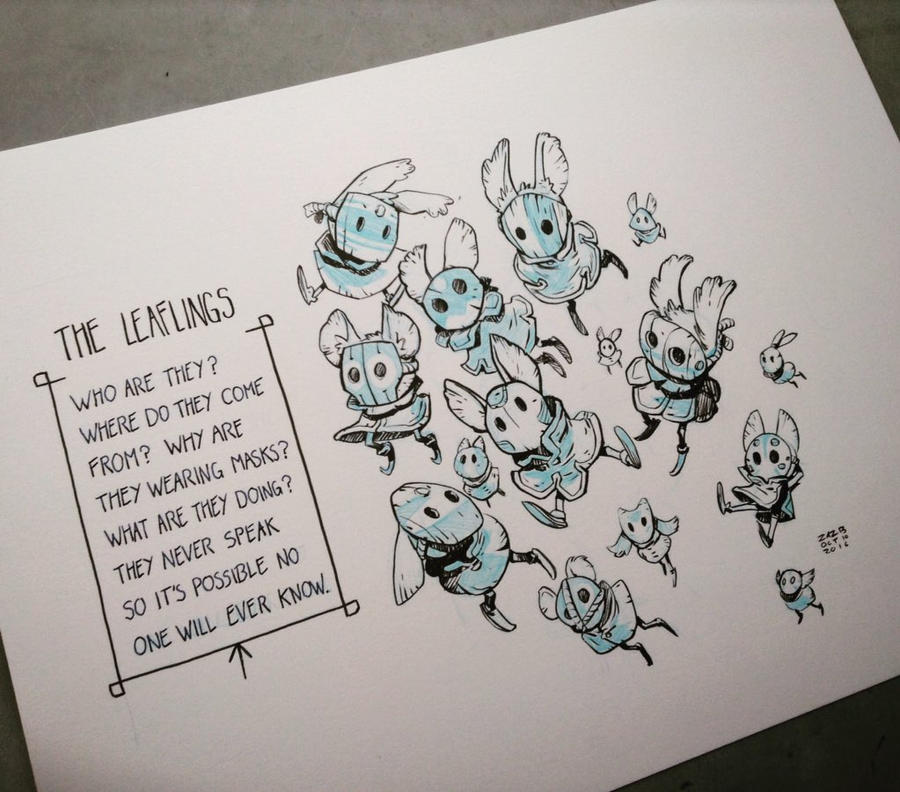 THE LEAFLINGS
WHO ARE THEY?
WHERE DO THEY COME
FROM? WHY ARE
THEY WEARING MASKS?
WHAT ARE THEY DOING?
THEY NEVER SPEAK
SO IT'S POSSIBLE NO
ONE WILL EVER KNOW.
ZAZB
OCT 10
2016